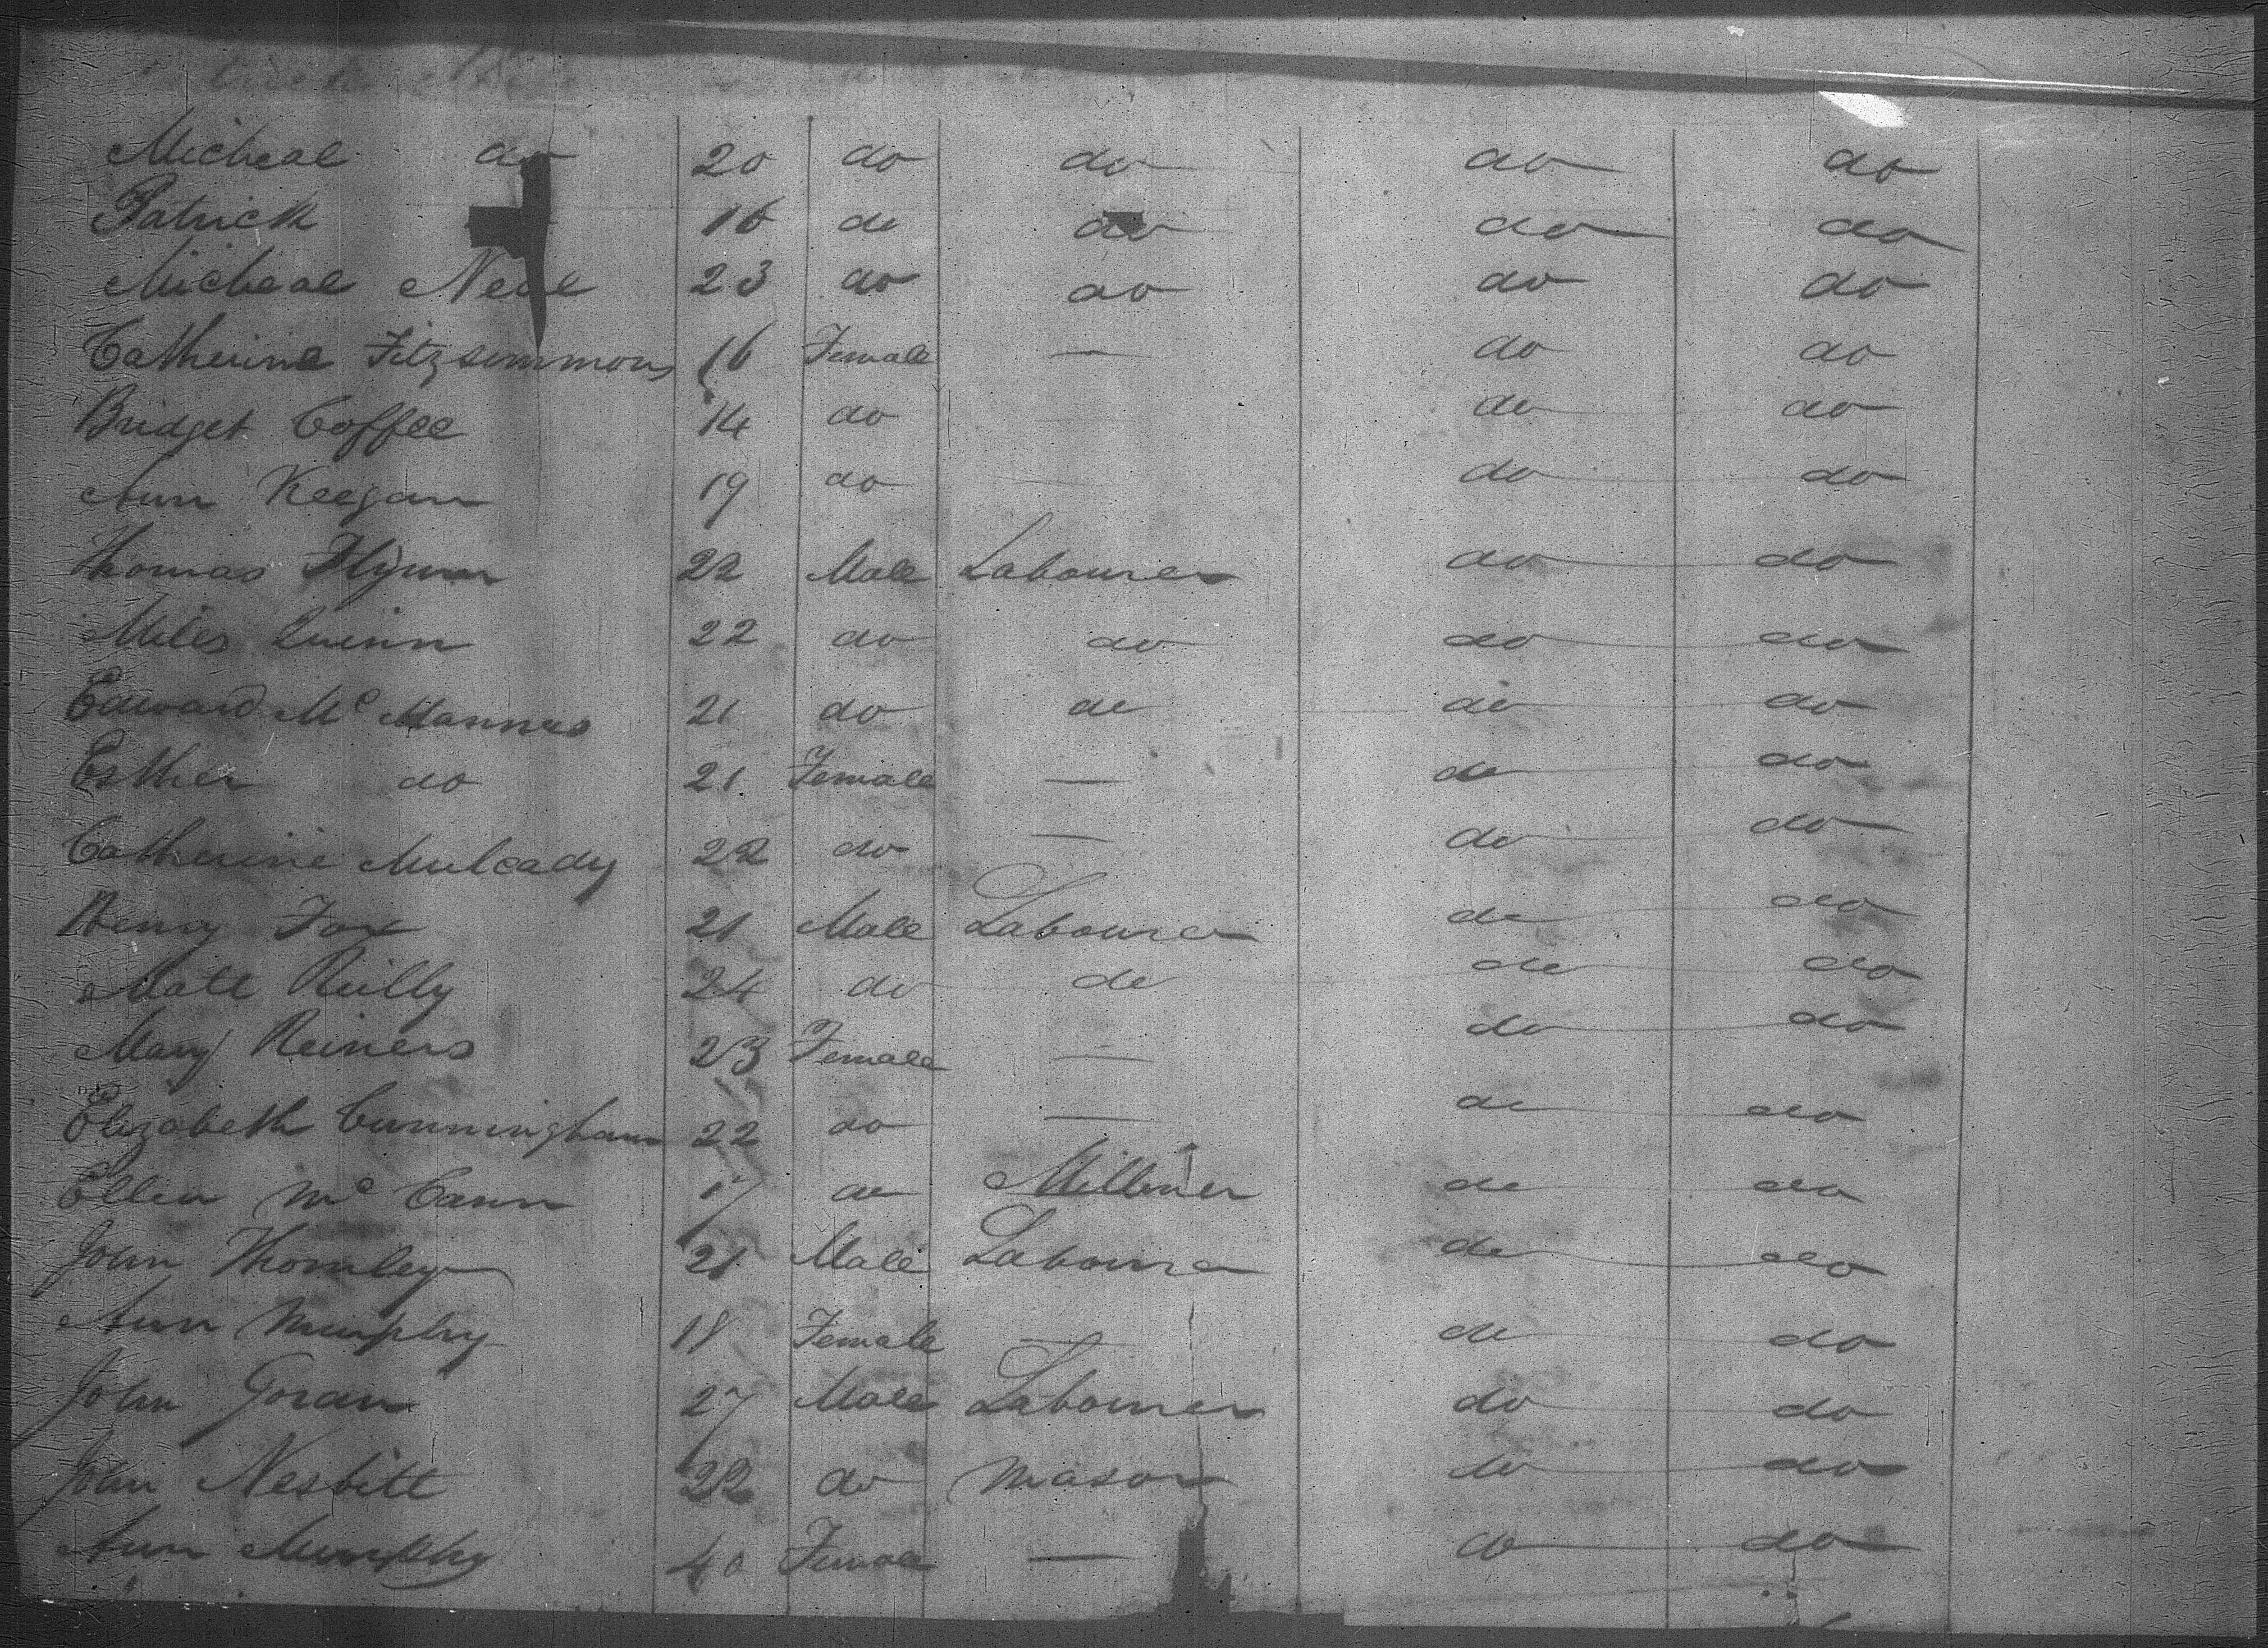 Micheal do 20 do do do do
Patrick 16 do do do do
Micheal Neil 23 do do do do
Catherine Fitzsimmons 16 Female — do do
Bridget Coffee 14 do — do do
Ann Keegan 19 do — do do
Thomas Flynn 22 Male Labourer do do
Miles Quinn 22 do do do do
Edward Mc Mannus 21 do do do do
Esther do 21 Female — do do
Catherine Mulcady 22 do — do do
Henry Fox 21 Male Labourer do do
Matt Reilly 24 do do do do
Mary Reiners 23 Female — do do
Elizabeth Cunningham 22 do — do do
Ellen Mc Cann 17 do Milliner do do
John Thornley 21 Male Labourer do do
Ann Murphy 18 Female — do do
John Goran 27 Male Labourer do do
John Nesbitt 22 do Mason do do
Ann Murphy 40 Female — do do